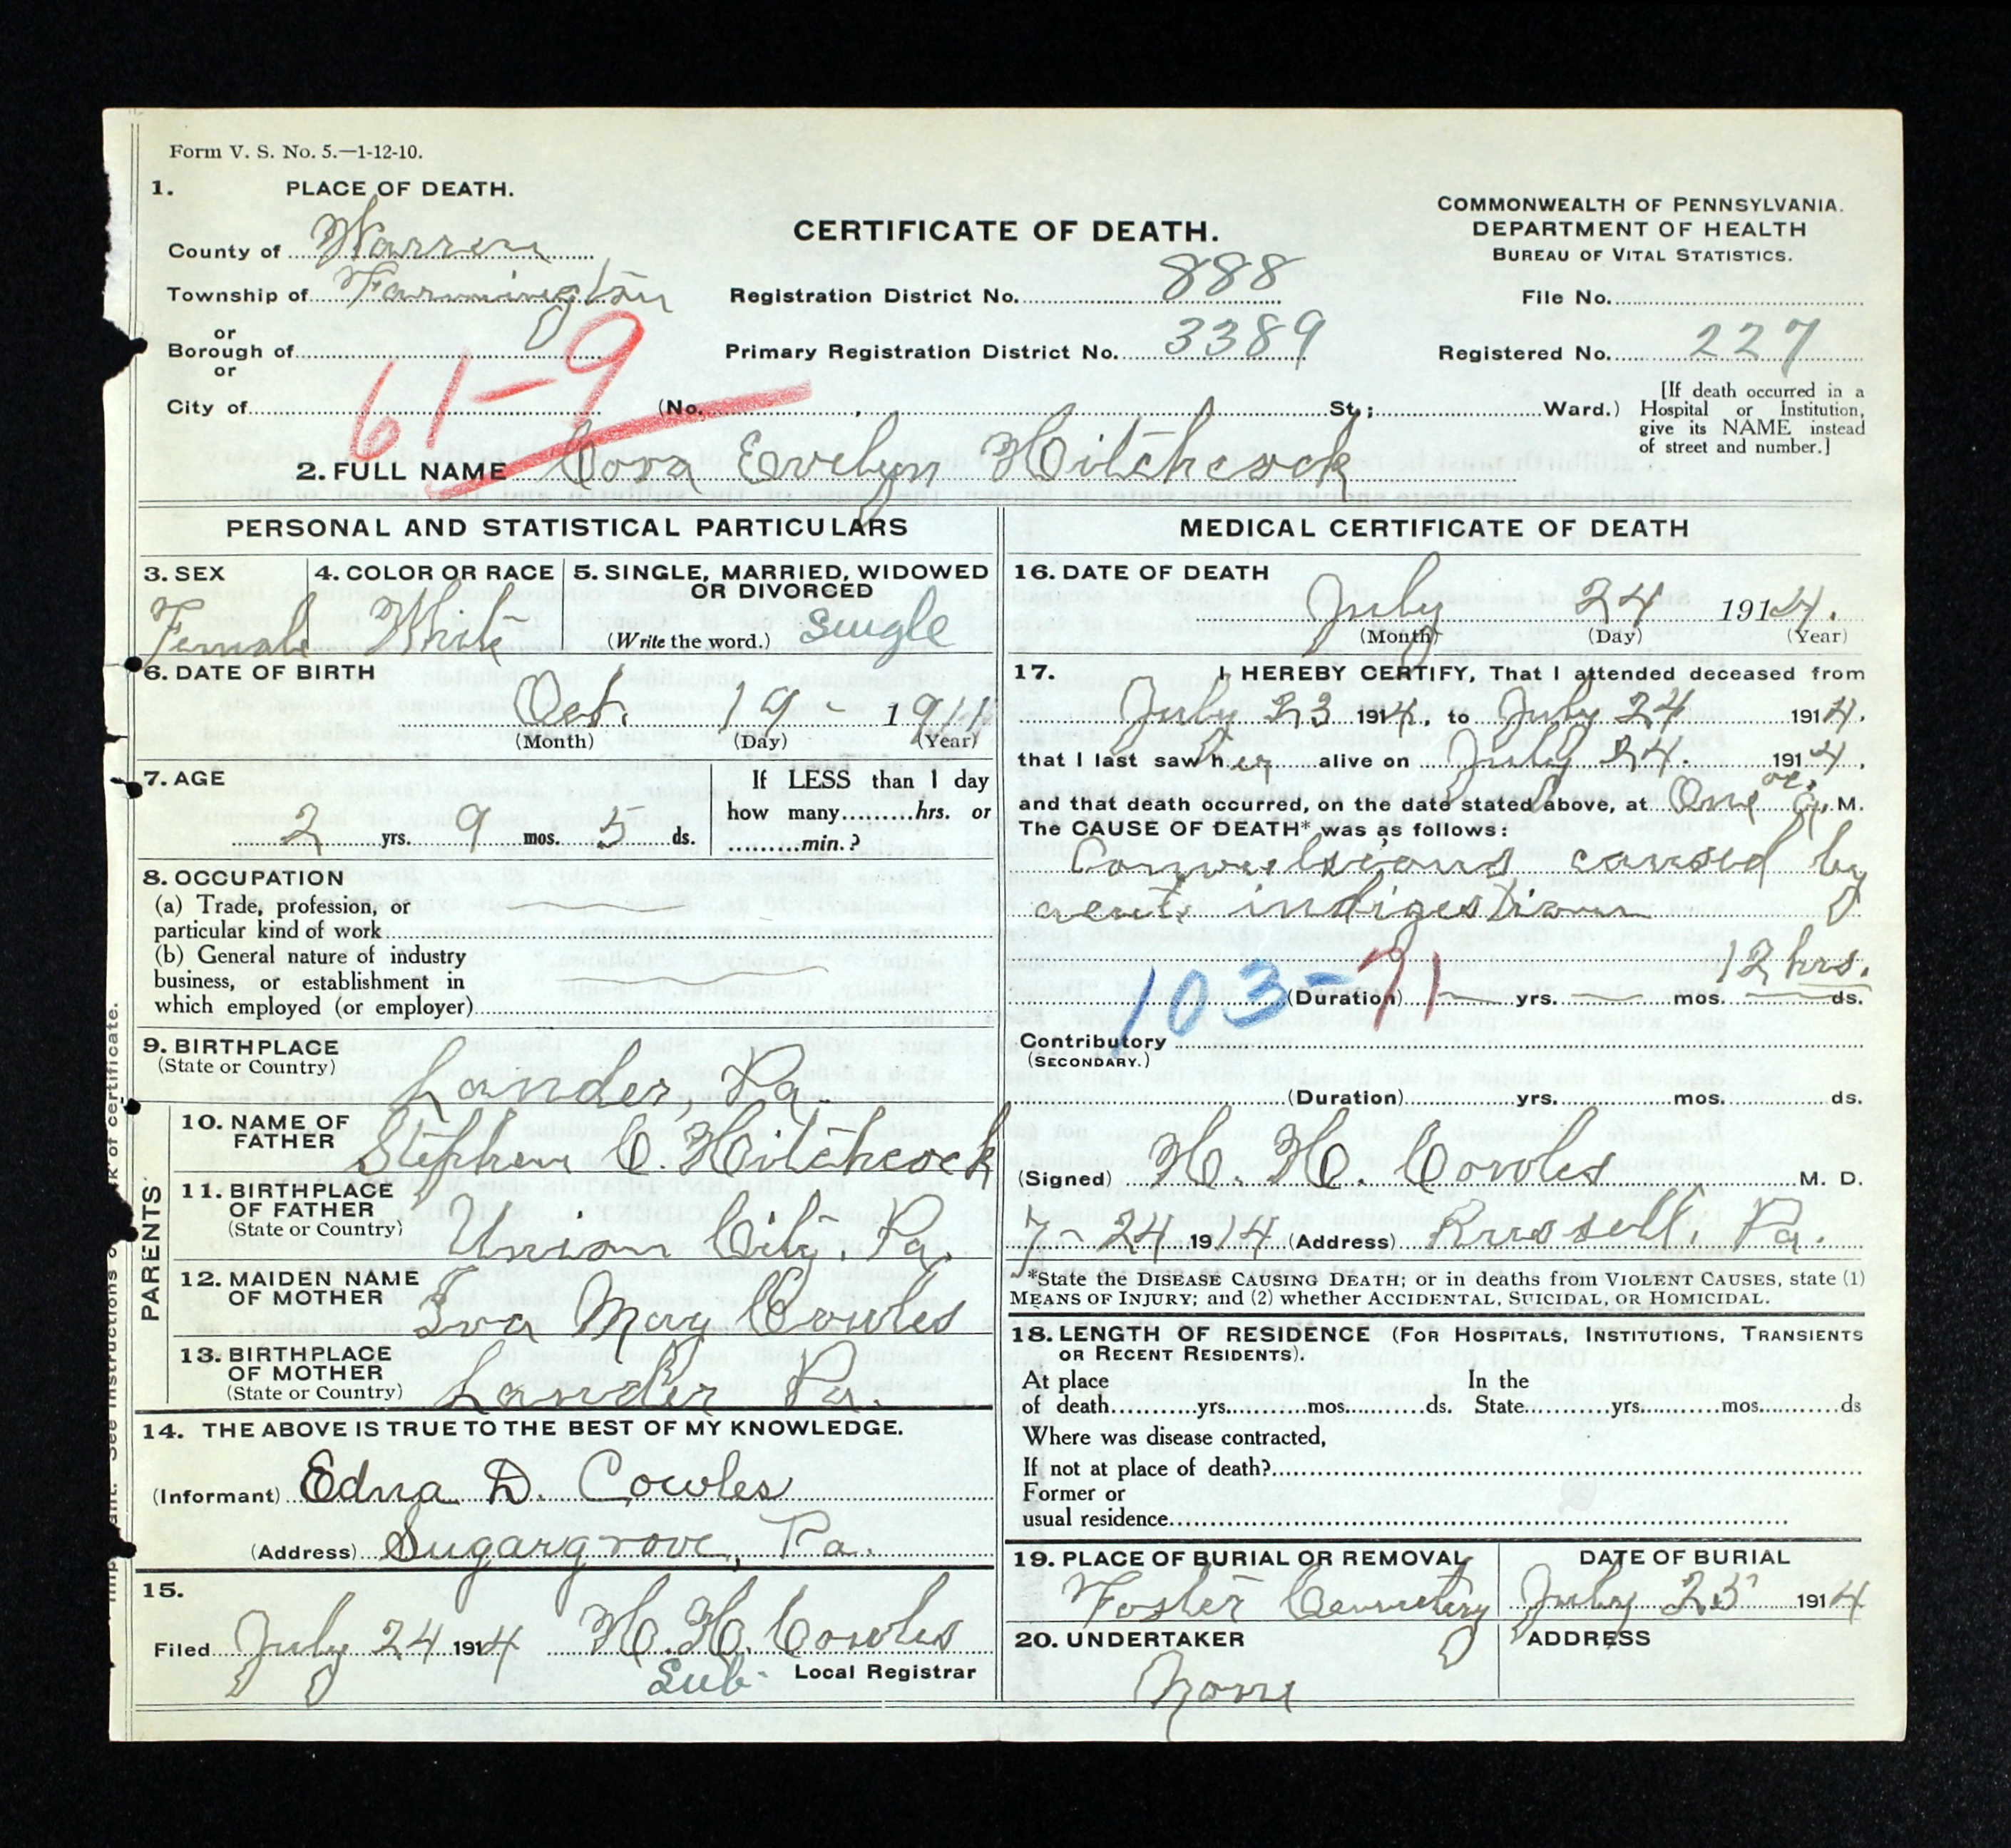 Form V. S. No. 5.—1-12-10.
1. PLACE OF DEATH.
County of Warren
Township of Farmington
or
Borough of
or
City of (No. , St.; Ward.)
CERTIFICATE OF DEATH.
Registration District No. 888
Primary Registration District No. 3389
COMMONWEALTH OF PENNSYLVANIA.
DEPARTMENT OF HEALTH
BUREAU OF VITAL STATISTICS.
File No.
Registered No. 227
[If death occurred in a
Hospital or Institution,
give its NAME instead
of street and number.]
61-9
2. FULL NAME Cora Evelyn Hitchcock
PERSONAL AND STATISTICAL PARTICULARS
3. SEX
Female
4. COLOR OR RACE
White
5. SINGLE, MARRIED, WIDOWED
OR DIVORCED
(Write the word.) Single
6. DATE OF BIRTH
Oct. 19 - 1911
(Month) (Day) (Year)
7. AGE
2 yrs. 9 mos. 5 ds.
If LESS than 1 day
how many hrs. or
min.?
8. OCCUPATION
(a) Trade, profession, or
particular kind of work
(b) General nature of industry
business, or establishment in
which employed (or employer)
9. BIRTHPLACE
(State or Country)
Lander, Pa
PARENTS
10. NAME OF
FATHER
Stephen C. Hitchcock
11. BIRTHPLACE
OF FATHER
(State or Country)
Union City, Pa.
12. MAIDEN NAME
OF MOTHER
Iva May Cowles
13. BIRTHPLACE
OF MOTHER
(State or Country)
Lander Pa.
14. THE ABOVE IS TRUE TO THE BEST OF MY KNOWLEDGE.
(Informant) Edna D. Cowles
(Address) Sugargrove, Pa.
15.
Filed July 24 1914 H. H. Cowles
Sub- Local Registrar
MEDICAL CERTIFICATE OF DEATH
16. DATE OF DEATH
July 24 1914.
(Month) (Day) (Year)
17. I HEREBY CERTIFY, That I attended deceased from
July 23 1914, to July 24 1914,
that I last saw her alive on July 24. 1914,
and that death occurred, on the date stated above, at One a, M.
The CAUSE OF DEATH* was as follows:
Convulsions caused by
acute indigestion
12 hrs.
103-71
(Duration) yrs. mos. ds.
Contributory
(SECONDARY.)
(Duration) yrs. mos. ds.
(Signed) H. H. Cowles M. D.
7-24 1914 (Address) Russell, Pa.
*State the DISEASE CAUSING DEATH; or in deaths from VIOLENT CAUSES, state (1)
MEANS OF INJURY; and (2) whether ACCIDENTAL, SUICIDAL, OR HOMICIDAL.
18. LENGTH OF RESIDENCE (FOR HOSPITALS, INSTITUTIONS, TRANSIENTS
OR RECENT RESIDENTS).
At place In the
of death yrs. mos. ds. State yrs. mos. ds
Where was disease contracted,
If not at place of death?
Former or
usual residence
19. PLACE OF BURIAL OR REMOVAL
Foster Cemetery
DATE OF BURIAL
July 25 1914
20. UNDERTAKER
None
ADDRESS
See instructions of certificate.